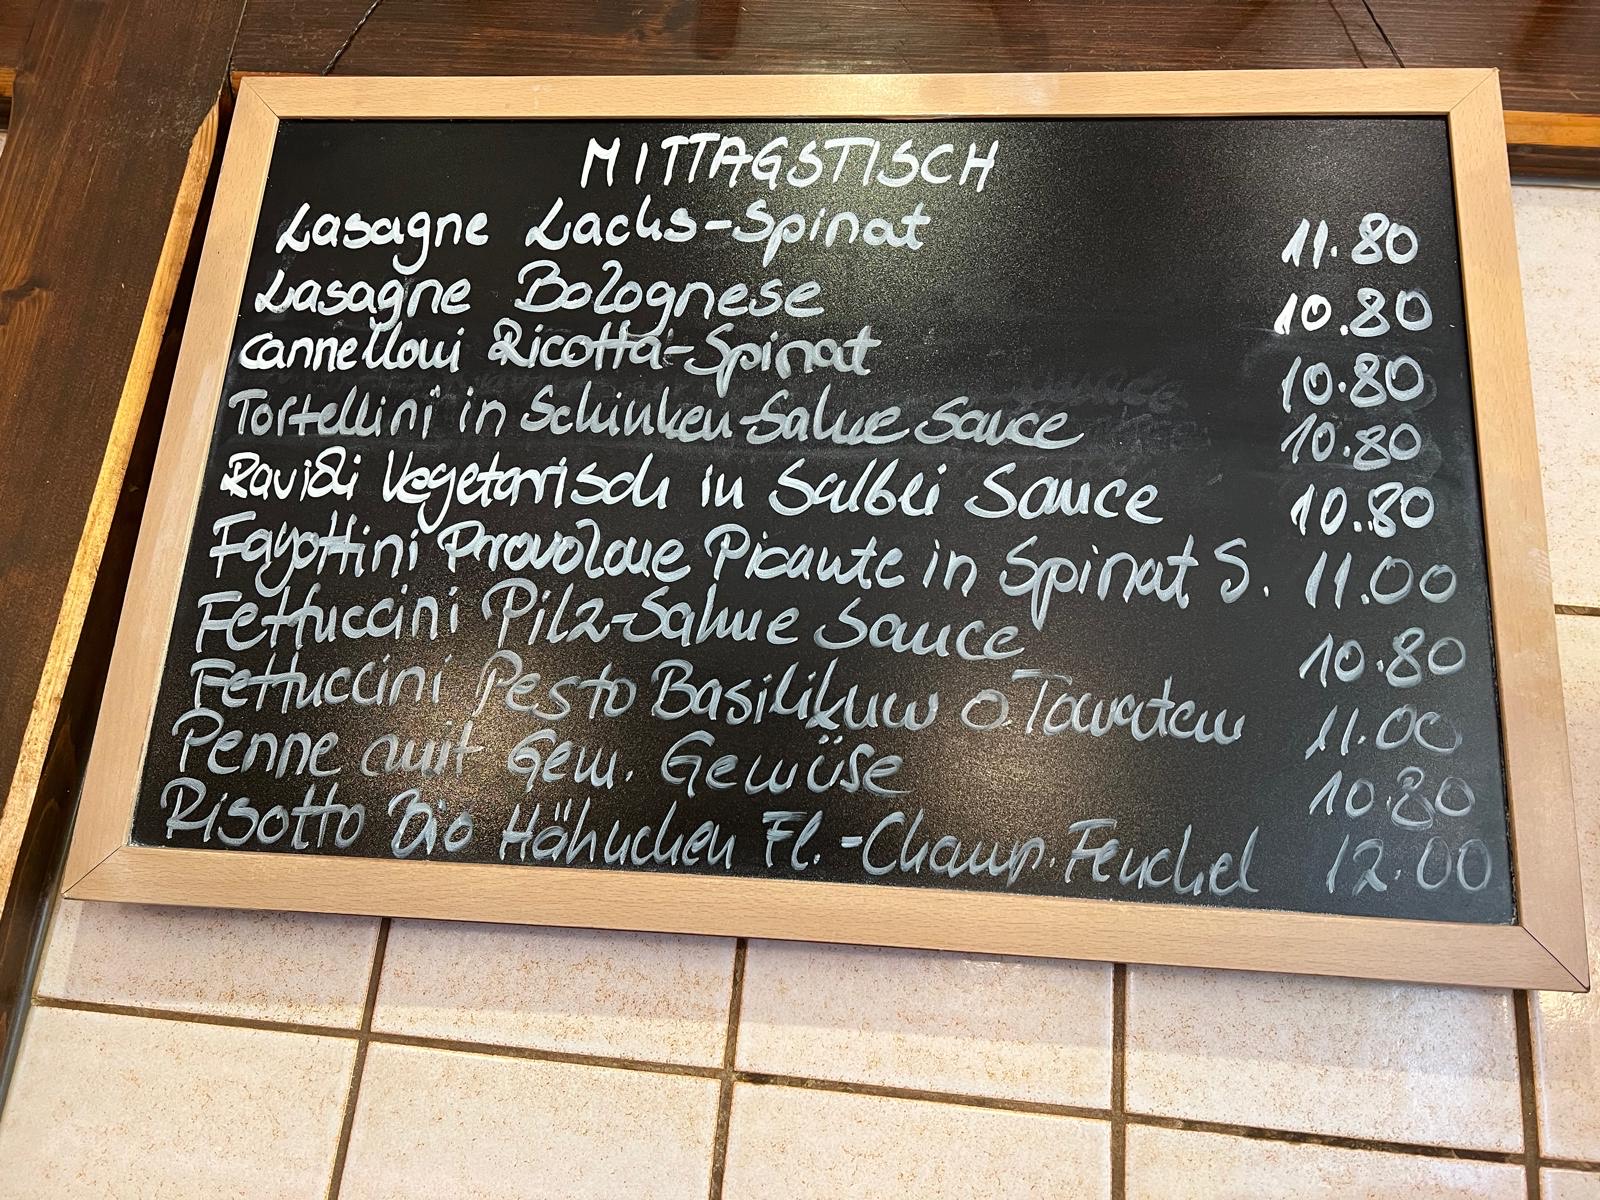 MITTAGSTISCH
Lasagne Lachs-Spinat 11.80
Lasagne Bolognese 10.80
Cannelloni Ricotta-Spinat 10.80
Tortellini in Schinken-Sahne Sauce 10.80
Ravioli Vegetarisch in Salbei Sauce 10.80
Fagottini Provolone Picante in Spinat S. 11.00
Fettuccini Pilz-Sahne Sauce 10.80
Fettuccini Pesto Basilikum o Tomaten 11.00
Penne mit Gem. Gemüse 10.80
Risotto Bio Hähnchen Fl.-Champ. Fenchel 12.00